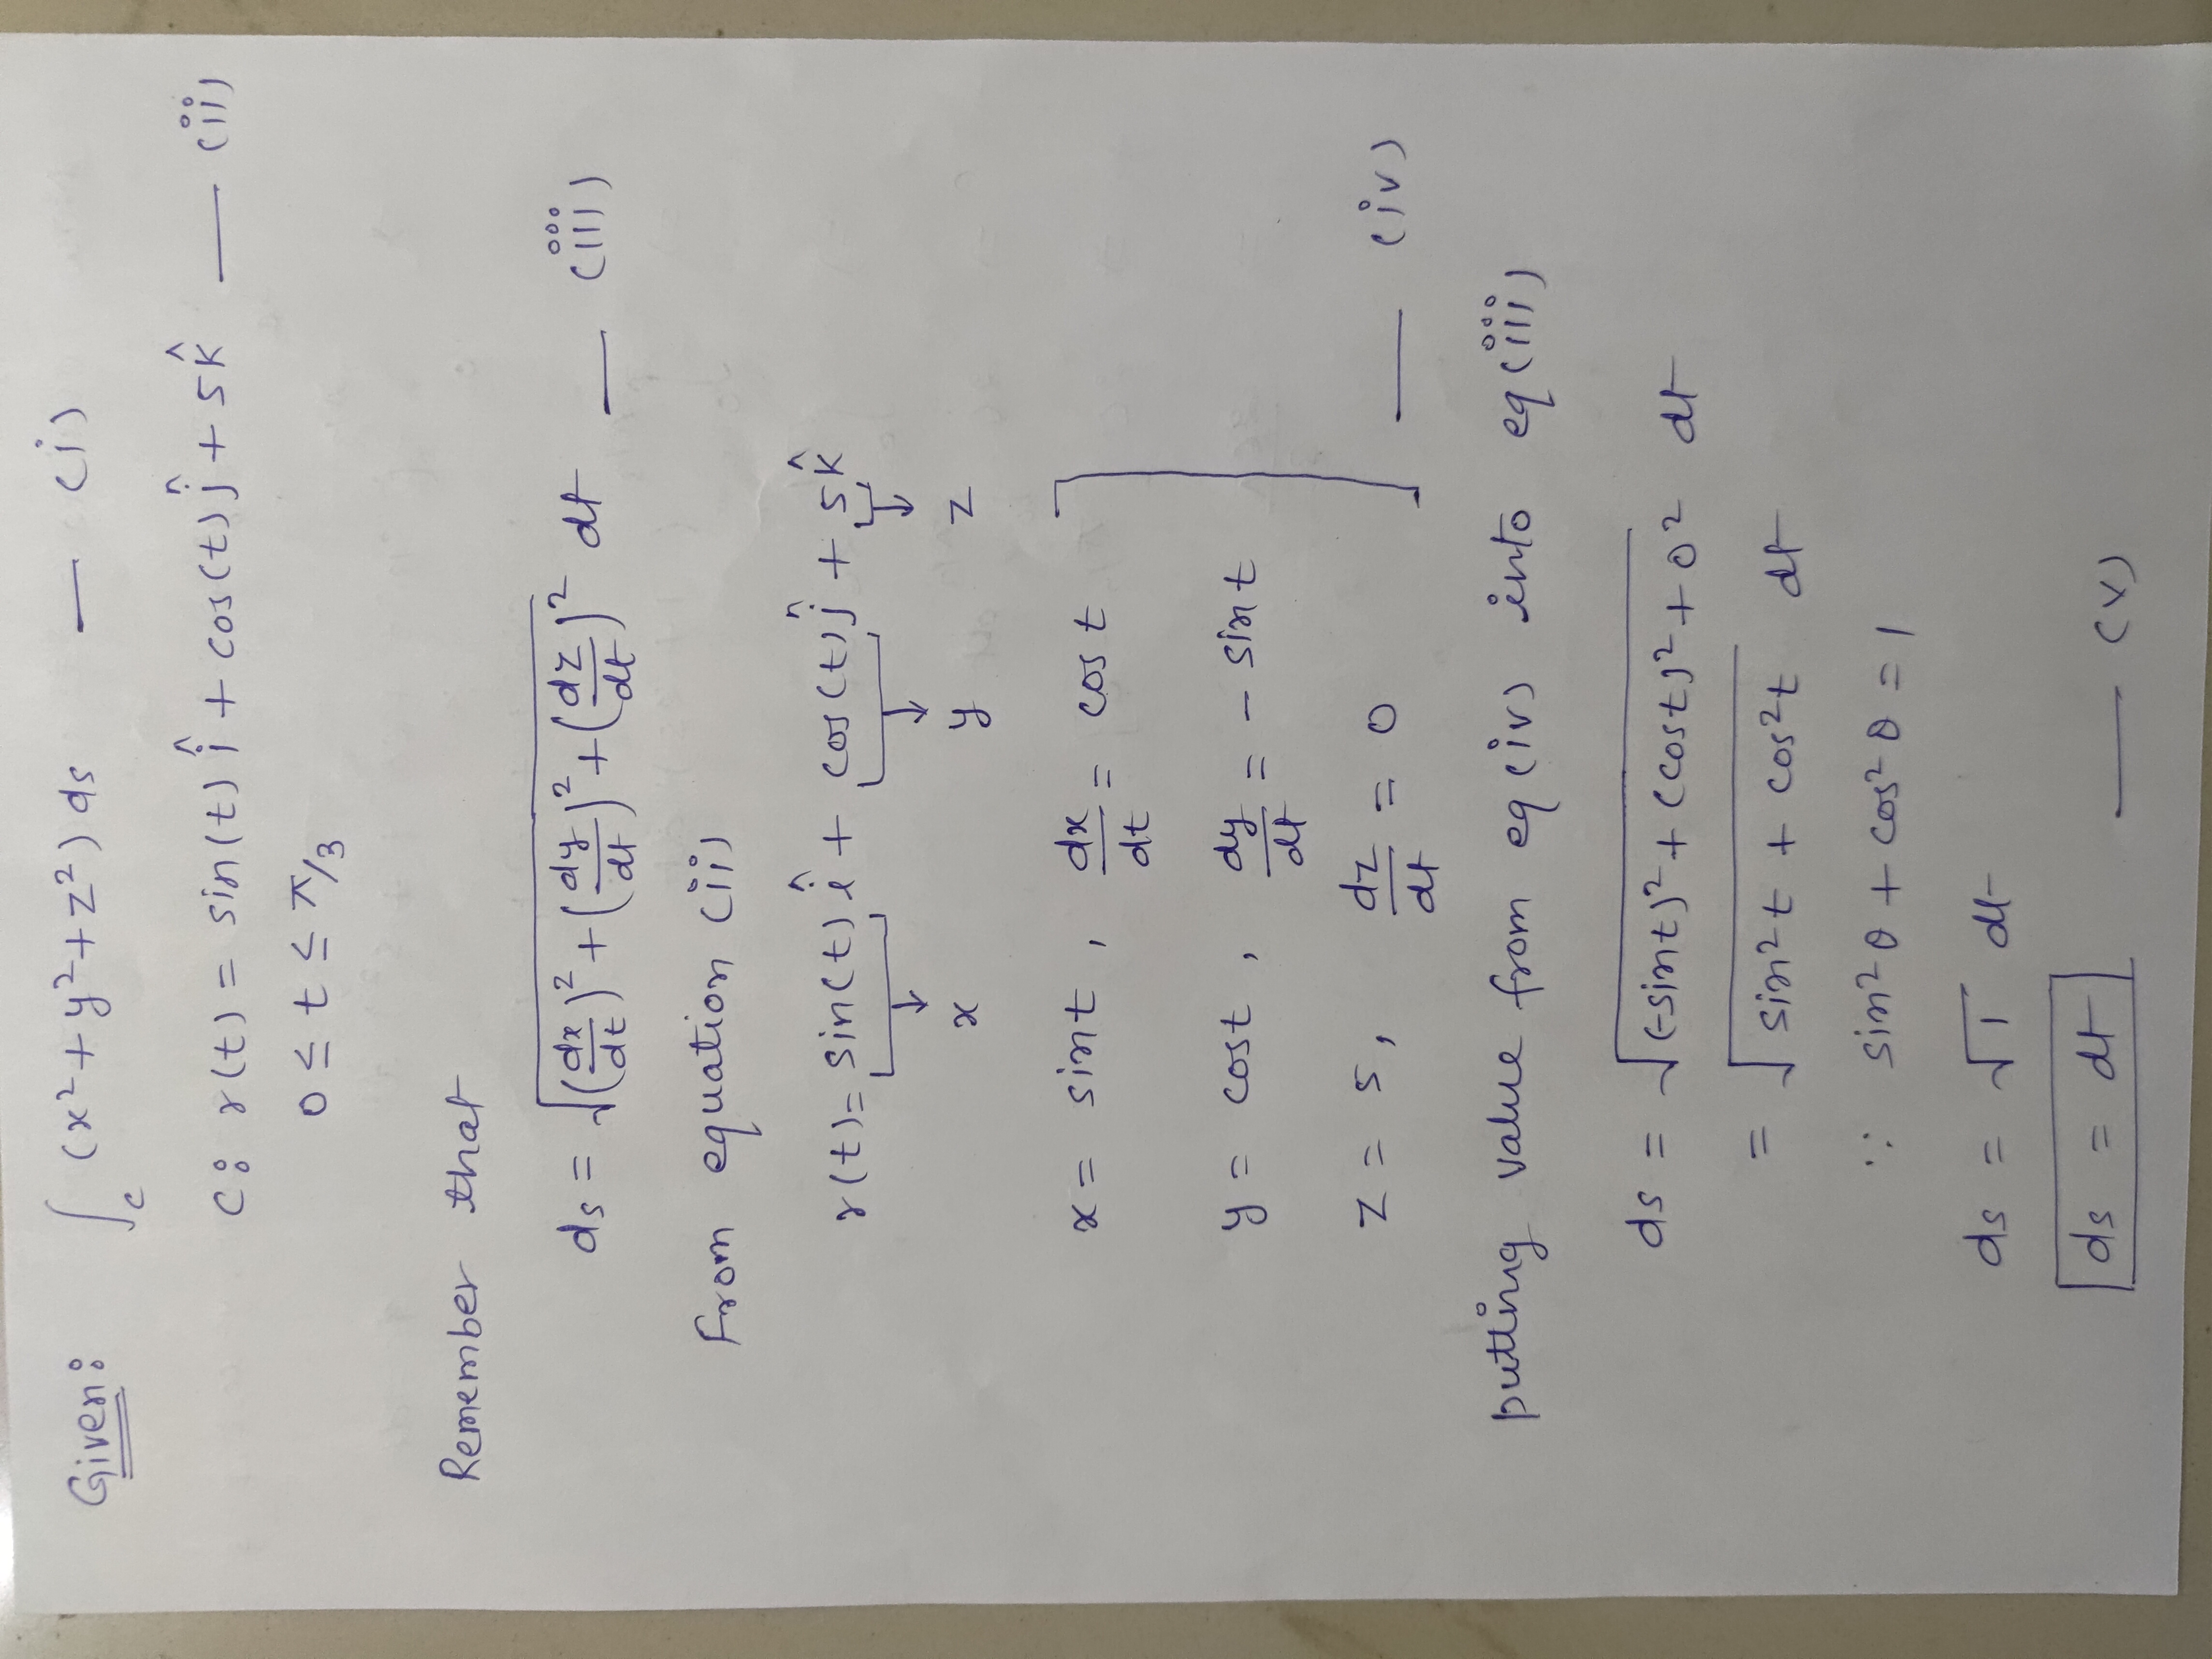 Given: ∫_C (x² + y² + z²) ds — (i)
C: r(t) = sin(t) î + cos(t) ĵ + 5 k̂ — (ii)
0 ≤ t ≤ π/3
Remember that
ds = √((dx/dt)² + (dy/dt)² + (dz/dt)²) dt — (iii)
From equation (ii)
r(t) = sin(t) î + cos(t) ĵ + 5 k̂
x y z
x = sin t , dx/dt = cos t
y = cos t , dy/dt = - sin t
z = 5 , dz/dt = 0 — (iv)
putting value from eq (iv) into eq (iii)
ds = √((-sin t)² + (cos t)² + 0²) dt
= √(sin² t + cos² t) dt
∵ sin² θ + cos² θ = 1
ds = √1 dt
ds = dt — (v)